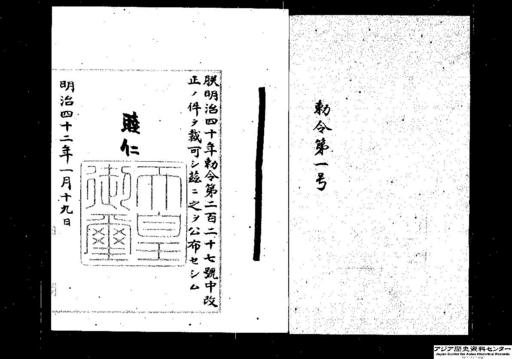 勅令第一号
朕明治四十年勅令第二百二十七號中改
正ノ件ヲ裁可シ茲ニ之ヲ公布セシム
睦仁
天皇
御璽
明治四十二年一月十九日
アジア歴史資料センター
Japan Center for Asian Historical Records